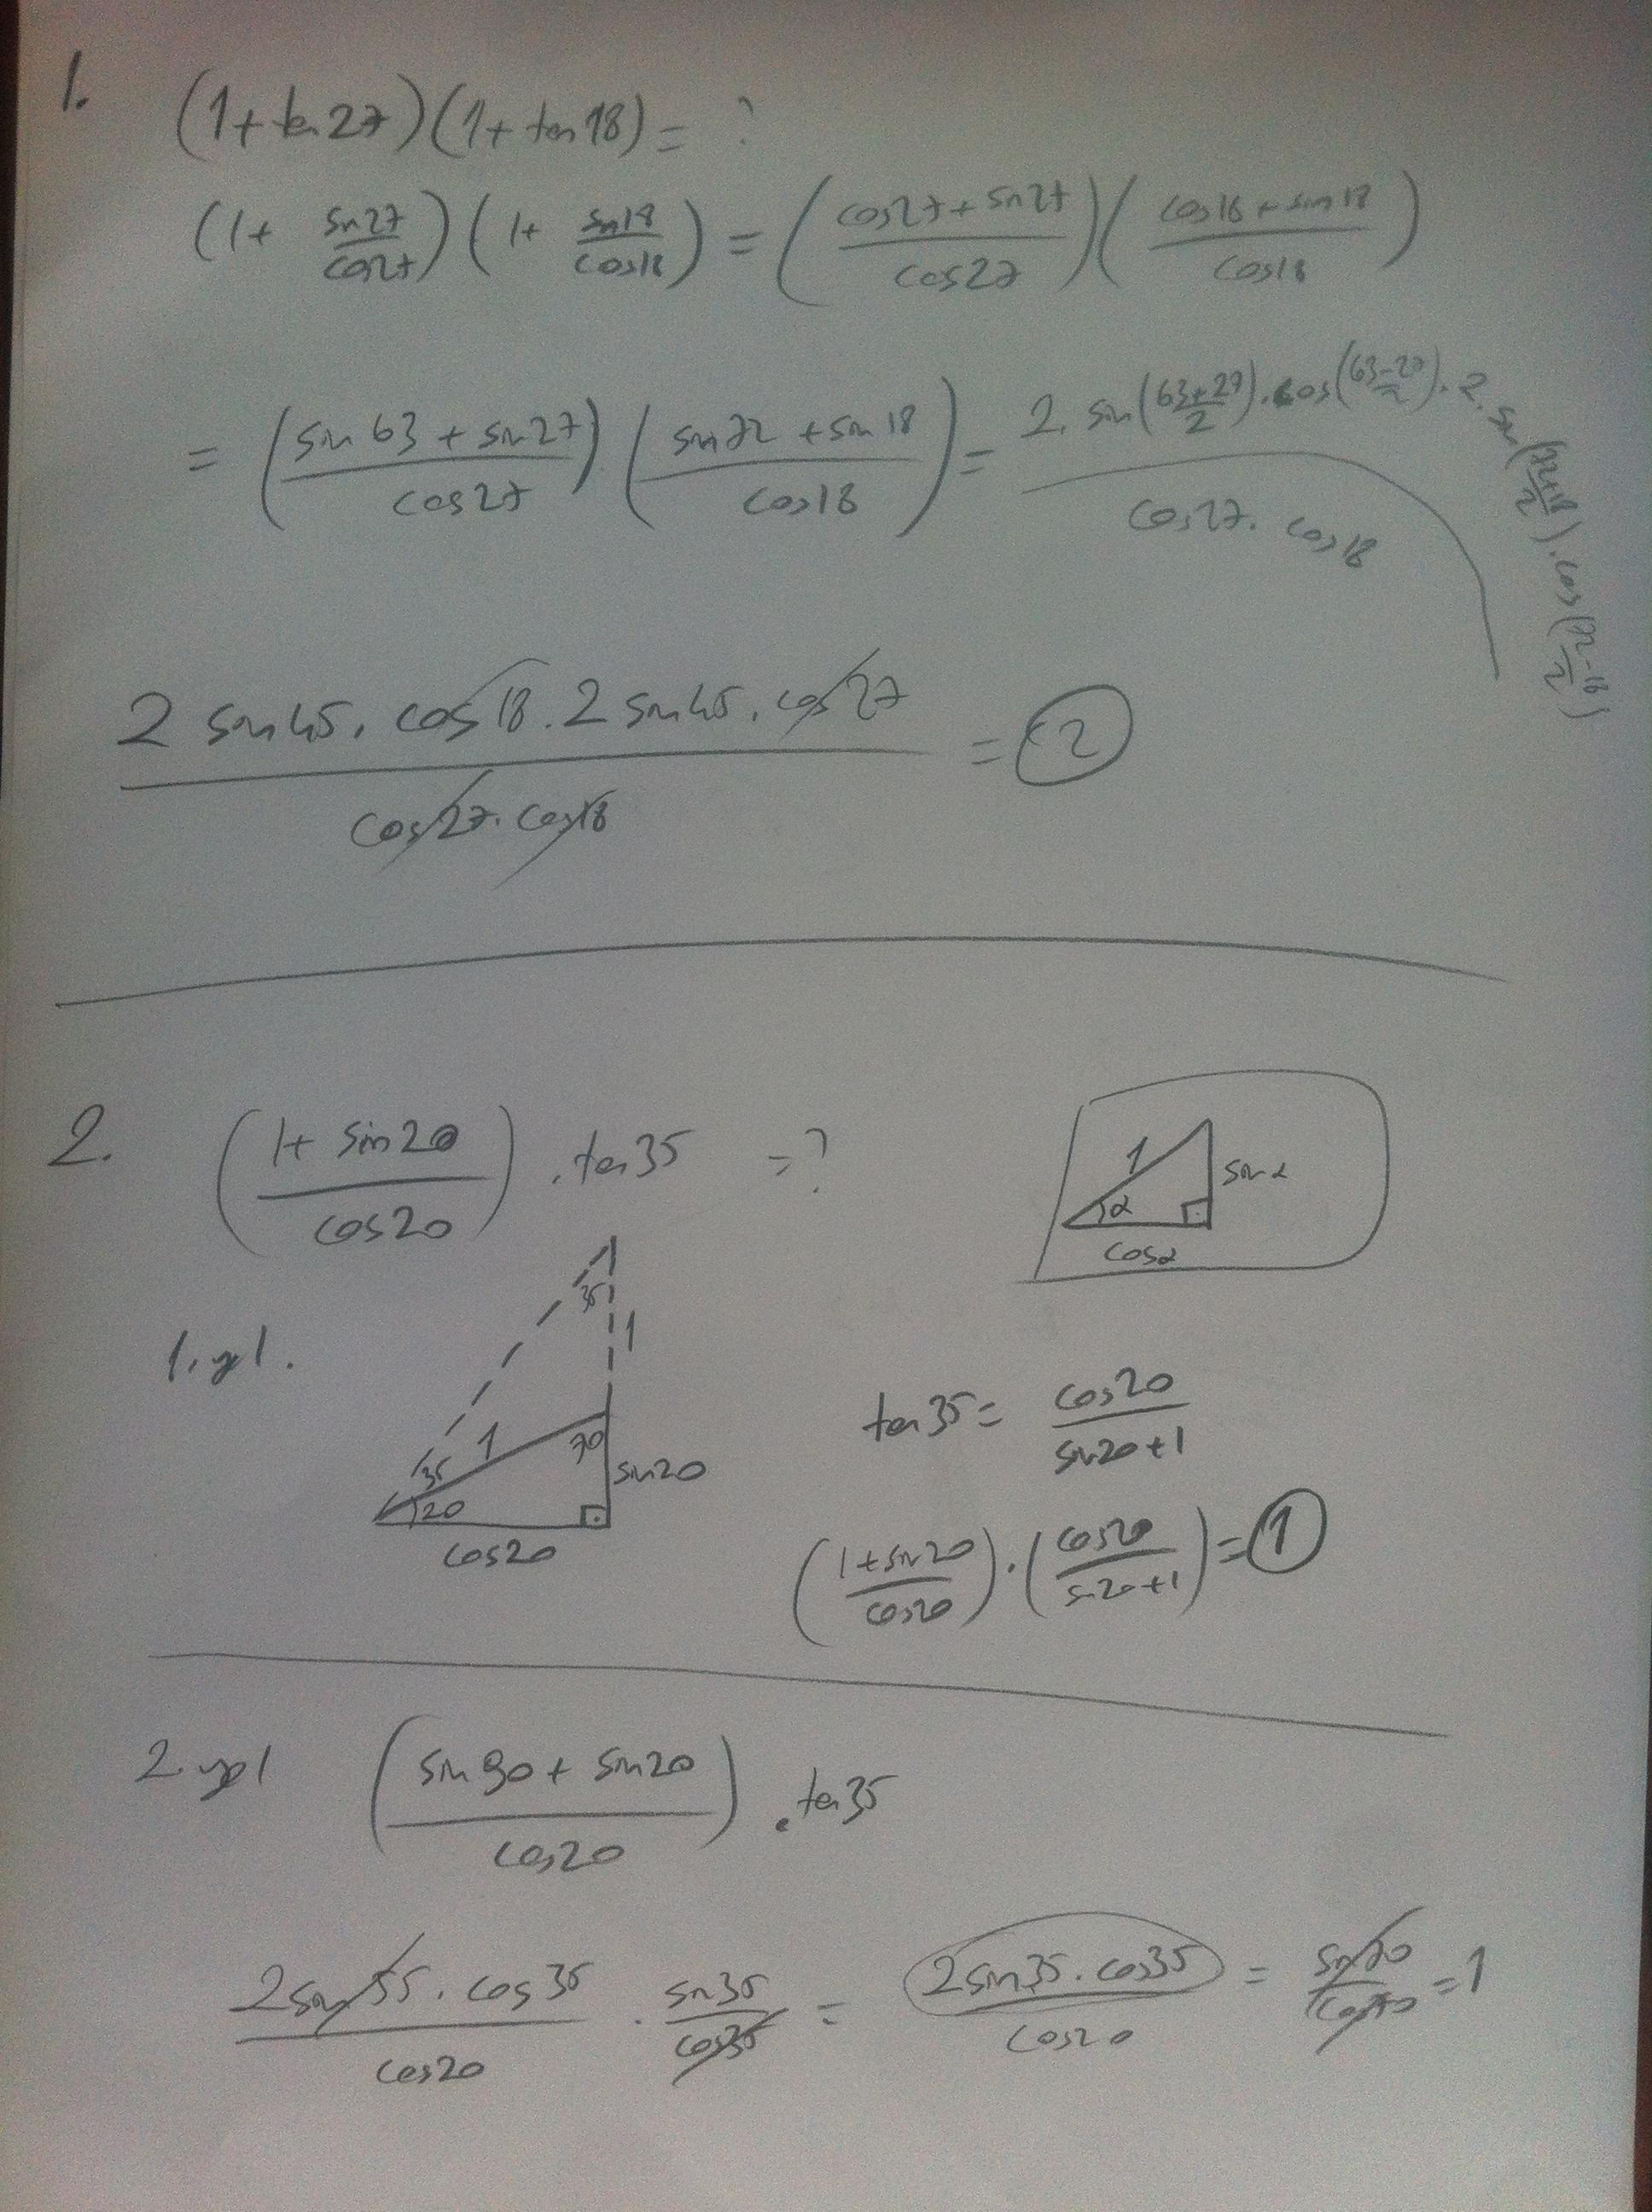 1.
(1+tan27)(1+tan18)= ?
(1+ sin27/cos27)(1+ sin18/cos18) = (cos27+sin27/cos27)(cos18+sin18/cos18)
= (sin63+sin27/cos27)(sin72+sin18/cos18) = 2.sin(63+27/2).cos(63-27/2).2.sin(72+18/2).cos(72-18/2)/cos27.cos18
2sin45.cos18.2sin45.cos27/cos27.cos18 = 2
2. (1+sin20/cos20).tan35 =?
1 sinα
α
cosα
1.yol.
35
1
35 1 70
20
sin20
cos20
tan35= cos20/sin20+1
(1+sin20/cos20).(cos20/sin20+1)=1
2.yol (sin90+sin20/cos20).tan35
2sin55.cos35/cos20 . sin35/cos35 = 2sin35.cos35/cos20 = sin70/cos20 =1